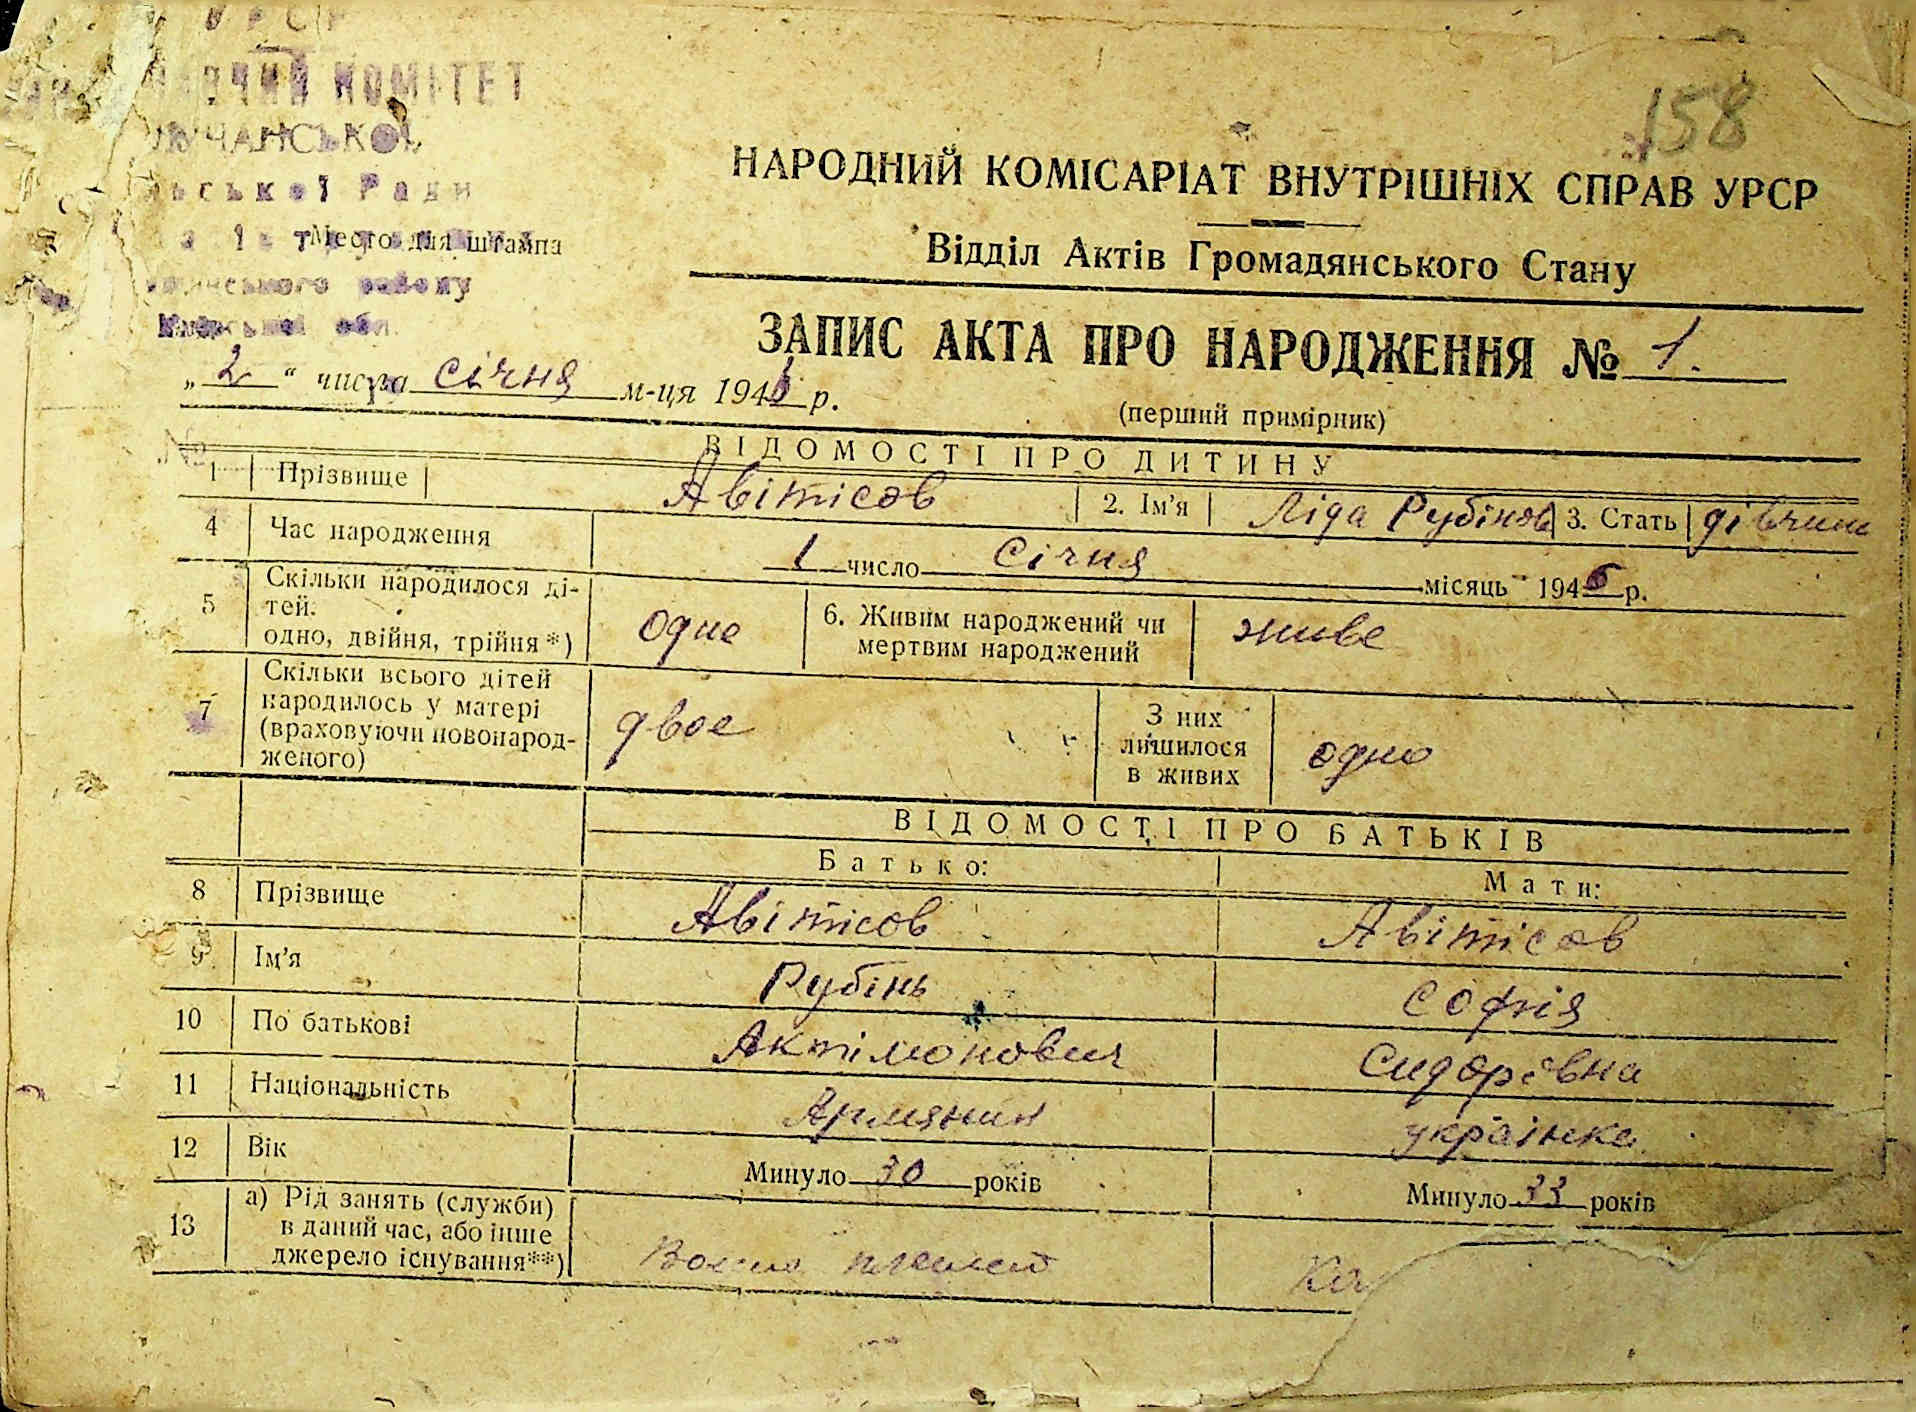 УРСР
КОМІТЕТ
ЛУЧАНСЬКОЇ
Ради
Место для штампа
району
Київської обл.
158
НАРОДНИЙ КОМІСАРІАТ ВНУТРІШНІХ СПРАВ УРСР
Відділ Актів Громадянського Стану
ЗАПИС АКТА ПРО НАРОДЖЕННЯ № 1.
„ 2 “ числа січня м-ця 194 р.
(перший примірник)
ВІДОМОСТІ ПРО ДИТИНУ
1 Прізвище Авітісов 2. Ім'я Ліда Рубінов 3. Стать дівчин
4 Час народження 1 число Січня місяць 1946 р.
5 Скільки народилося ді-
тей.
одно, двійня, трійня *) одне 6. Живим народжений чи
мертвим народжений живе
7 Скільки всього дітей
народилось у матері
(враховуючи новонарод-
женого) двое З них
лишилося
в живих одно
ВІДОМОСТІ ПРО БАТЬКІВ
Батько: Мати:
8 Прізвище Авітісов Авітісов
9 Ім'я Рубінь Софія
10 По батькові Актімонович Сидорівна
11 Національність Армянин українка
12 Вік Минуло 30 років Минуло 33 років
13 а) Рід занять (служби)
в даний час, або інше
джерело існування**) Ко